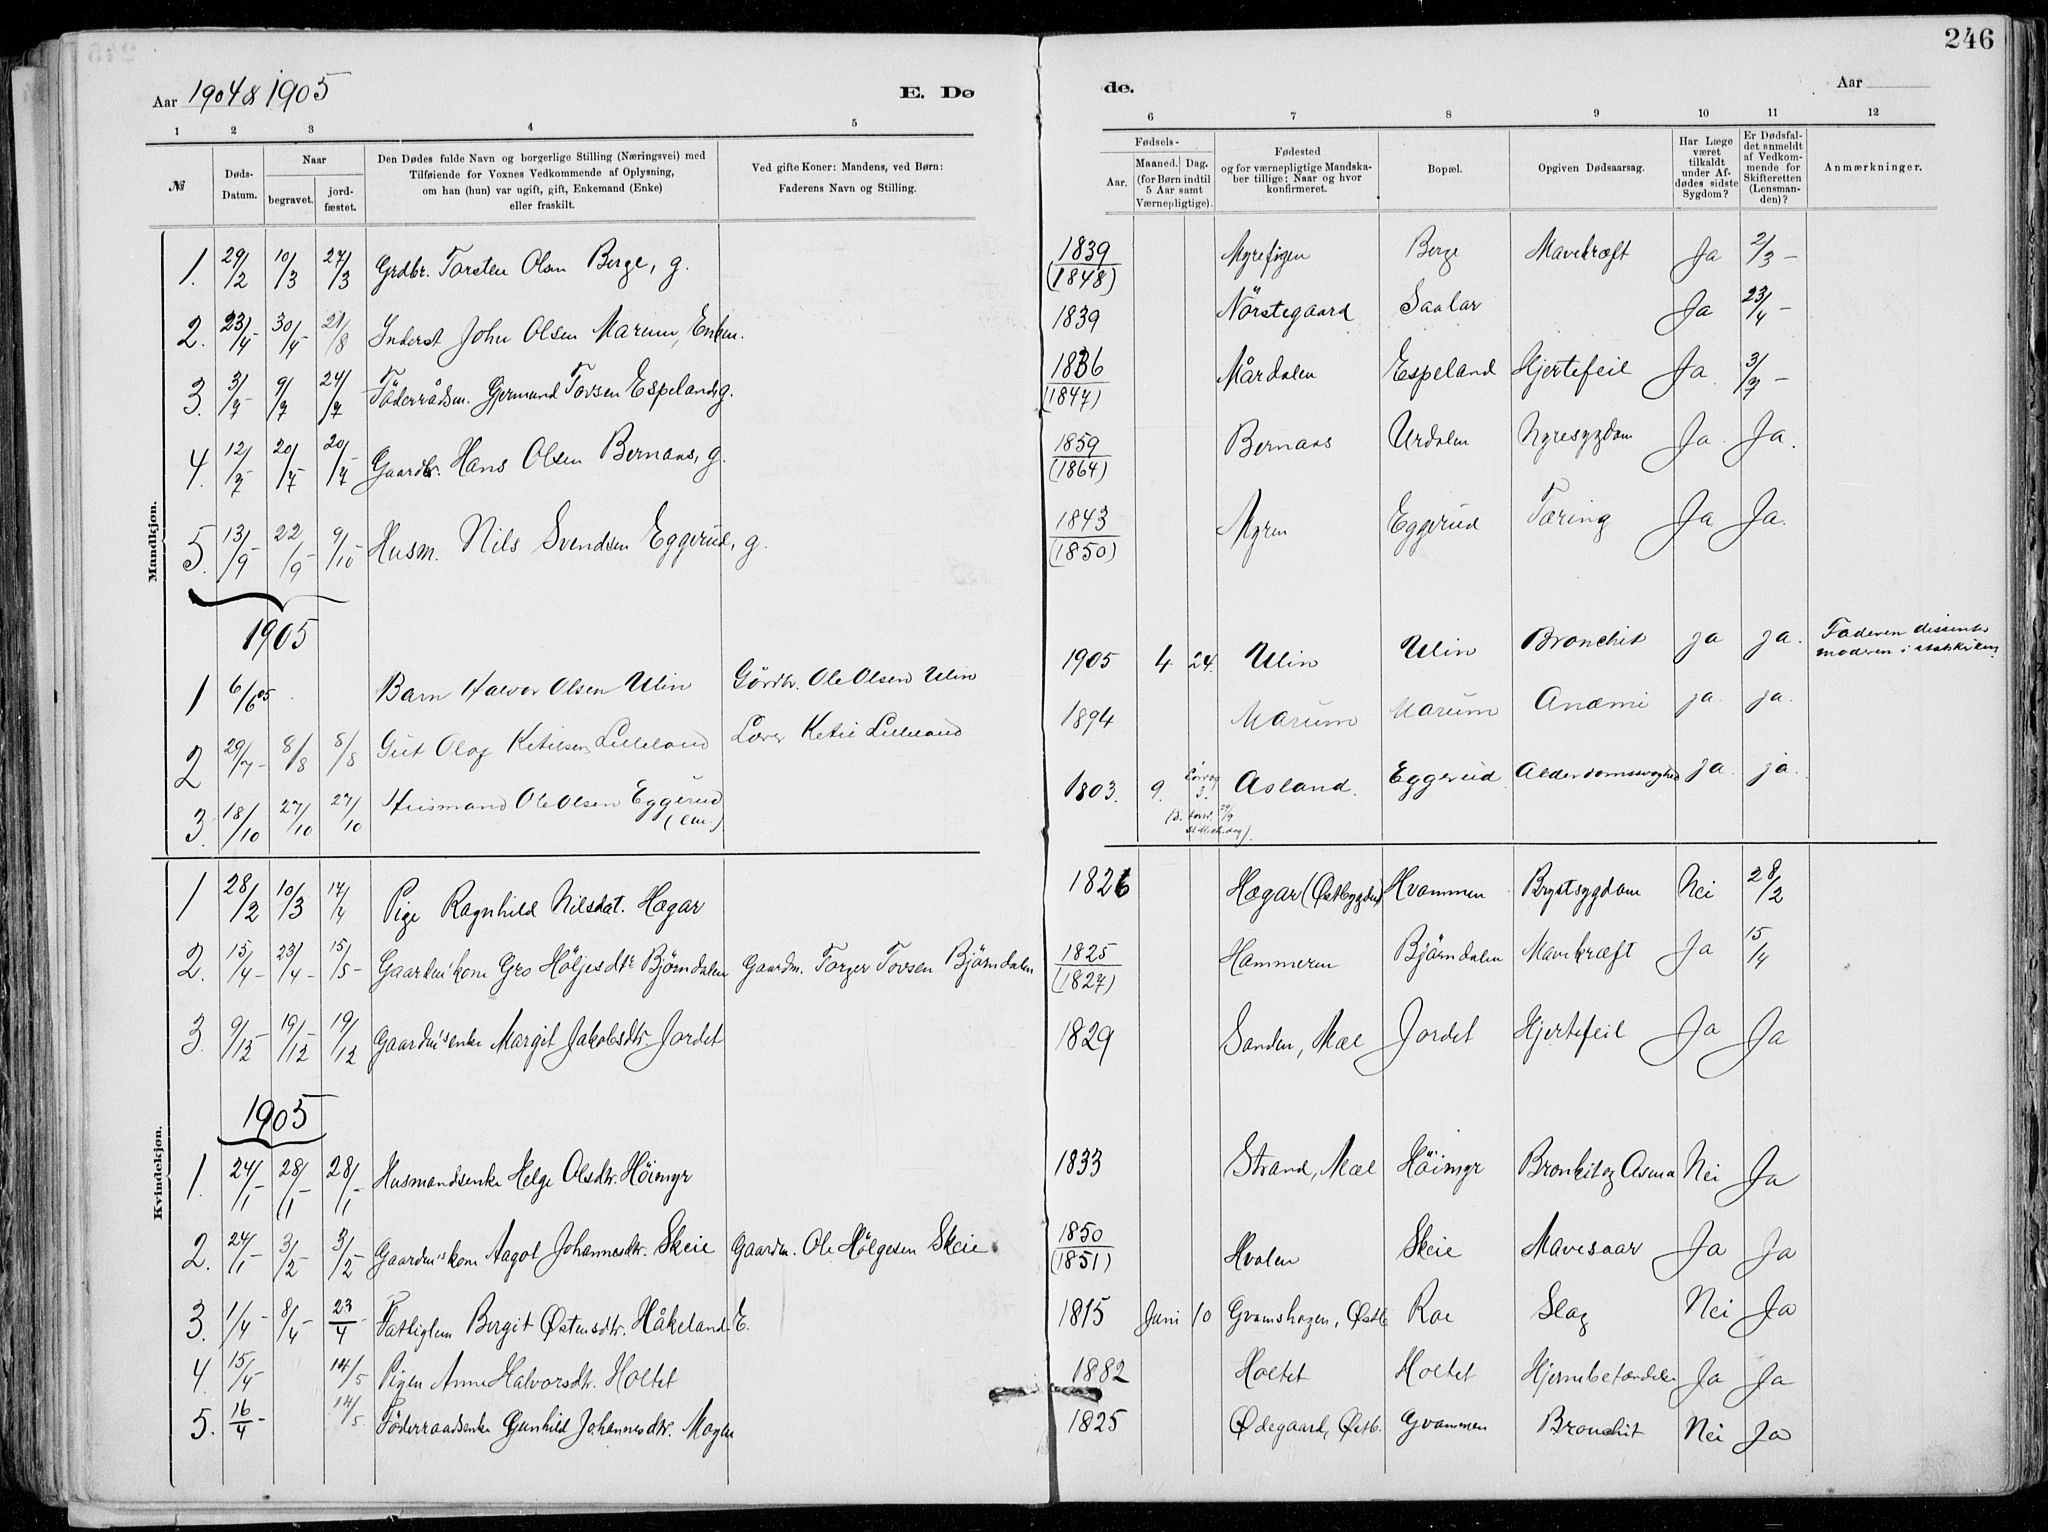 246
Aar 1904 & 1905 E. Dø de. Aar
1 2 3 4 5 6 7 8 9 10 11 12
№
Døds-Datum.
Naar
begravet.
jord-fæstet.
Den Dødes fulde Navn og borgerlige Stilling (Næringsvei) med
Tilføiende for Voxnes Vedkommende af Oplysning,
om han (hun) var ugift, gift, Enkemand (Enke)
eller fraskilt.
Ved gifte Koner: Mandens, ved Børn:
Faderens Navn og Stilling.
Fødsels-
Aar.
Maaned. Dag.
(for Børn indtil
5 Aar samt
Værnepligtige).
Fødested
og for værnepligtige Mandska-
ber tillige: Naar og hvor
konfirmeret.
Bopæl.
Opgiven Dødsaarsag.
Har Læge
været
tilkaldt
under Af-
dødes sidste
Sygdom?
Er Dødsfal-
det anmeldt
af Vedkom-
mende for
Skifteretten
(Lensman-
den)?
Anmærkninger.
Mandkjøn.
1. 29/2 10/3 27/3 Grdbr. Torsten Olsen Berge, g. 1839 (1848) Myrefigen Berge Mavekræft Ja 2/3 -
2. 23/4 - 30/4 - 21/8 Inderst John Olsen Marum, Enkm. 1839 Nörstegaard Saalar Ja 23/4 -
3. 3/7 - 9/7 24/7 Föderrådsm. Gjermund Tovsen Espeland, g. 1836 (1847) Mårdalen Espeland Hjertefeil Ja 3/7 -
4. 12/7 20/7 20/7 Gaardbr. Hans Olsen Bernaas, g. 1859 (1864) Bernaas Urdalen Nyresygdom Ja Ja.
5. 13/9 - 22/9 - 9/10 Husm. Nils Svendsen Eggerud, g. 1843 (1850) Myren Eggerud Tæring Ja Ja.
1905
1 6/6 05 Barn Halvor Olsen Ulin Gördbr. Ole Olsen Ulin 1905 4 24. Ulin Ulin Bronchit ja ja. Faderen dissenter
moderen i statskirken
2 29/7 - 8/8 8/8 Gut Olaf Ketilsen Lilleland Lærer Ketil Lilleland 1894 Marum Marum Anæmi ja. ja.
3. 18/10 27/10 27/10 Husmand Ole Olsen Eggerud (em.) 1803. 9. Asland. Eggerud Alderdomssvaghed ja. ja.
Kvindekjøn.
1 28/2 10/3 17/4 Pige Ragnhild Nilsdat. Hægar 1826 Hægar (Østbygden) Hvammen Brystsygdom Nei 28/2
2. 15/4 - 23/4 - 15/5 - Gaardm's kone Gro Höljesdtr Björndalen Gaardm. Torger Tovsen Björndalen 1825 (1827) Hammeren Björndalen Mavekræft Ja 15/4
3. 9/12 - 19/12 - 19/12 Gaardm's enke Margit Jakobsdtr. Jordet 1829 Sanden, Mæl Jordet Hjertefeil Ja Ja
1905
1. 24/1 - 28/1 - 28/1 - Husmandsenke Helge Olsdtr. Höimyr 1833 Strand, Mæl Höimyr Bronkit og Asma Nei Ja
2. 24/1 - 3/2 - 3/2 Gaardm's kone Aagot Johannesdtr. Skeie Gaardm. Ole Hölgesen Skeie 1850 (1851) Hvalen Skeie Mavesaar Ja Ja
3. 1/4 - 8/4 - 23/4 Fattiglem Bergit Østensdtr. Håkeland E. 1815 Juni 10 Gvamshagen, Østb. Roe Slag Nei Ja
4. 15/4 - 14/5 Pigen Anne Halvorsdtr. Holtet 1882 Holtet Holtet Hjernebetændelse Ja Ja
5. 16/4 - 14/5 Föderraadsenke Gunhild Johannesdtr. Mogen 1825 Ødegaard, Østb. Gvammen Bronchit Nei Ja